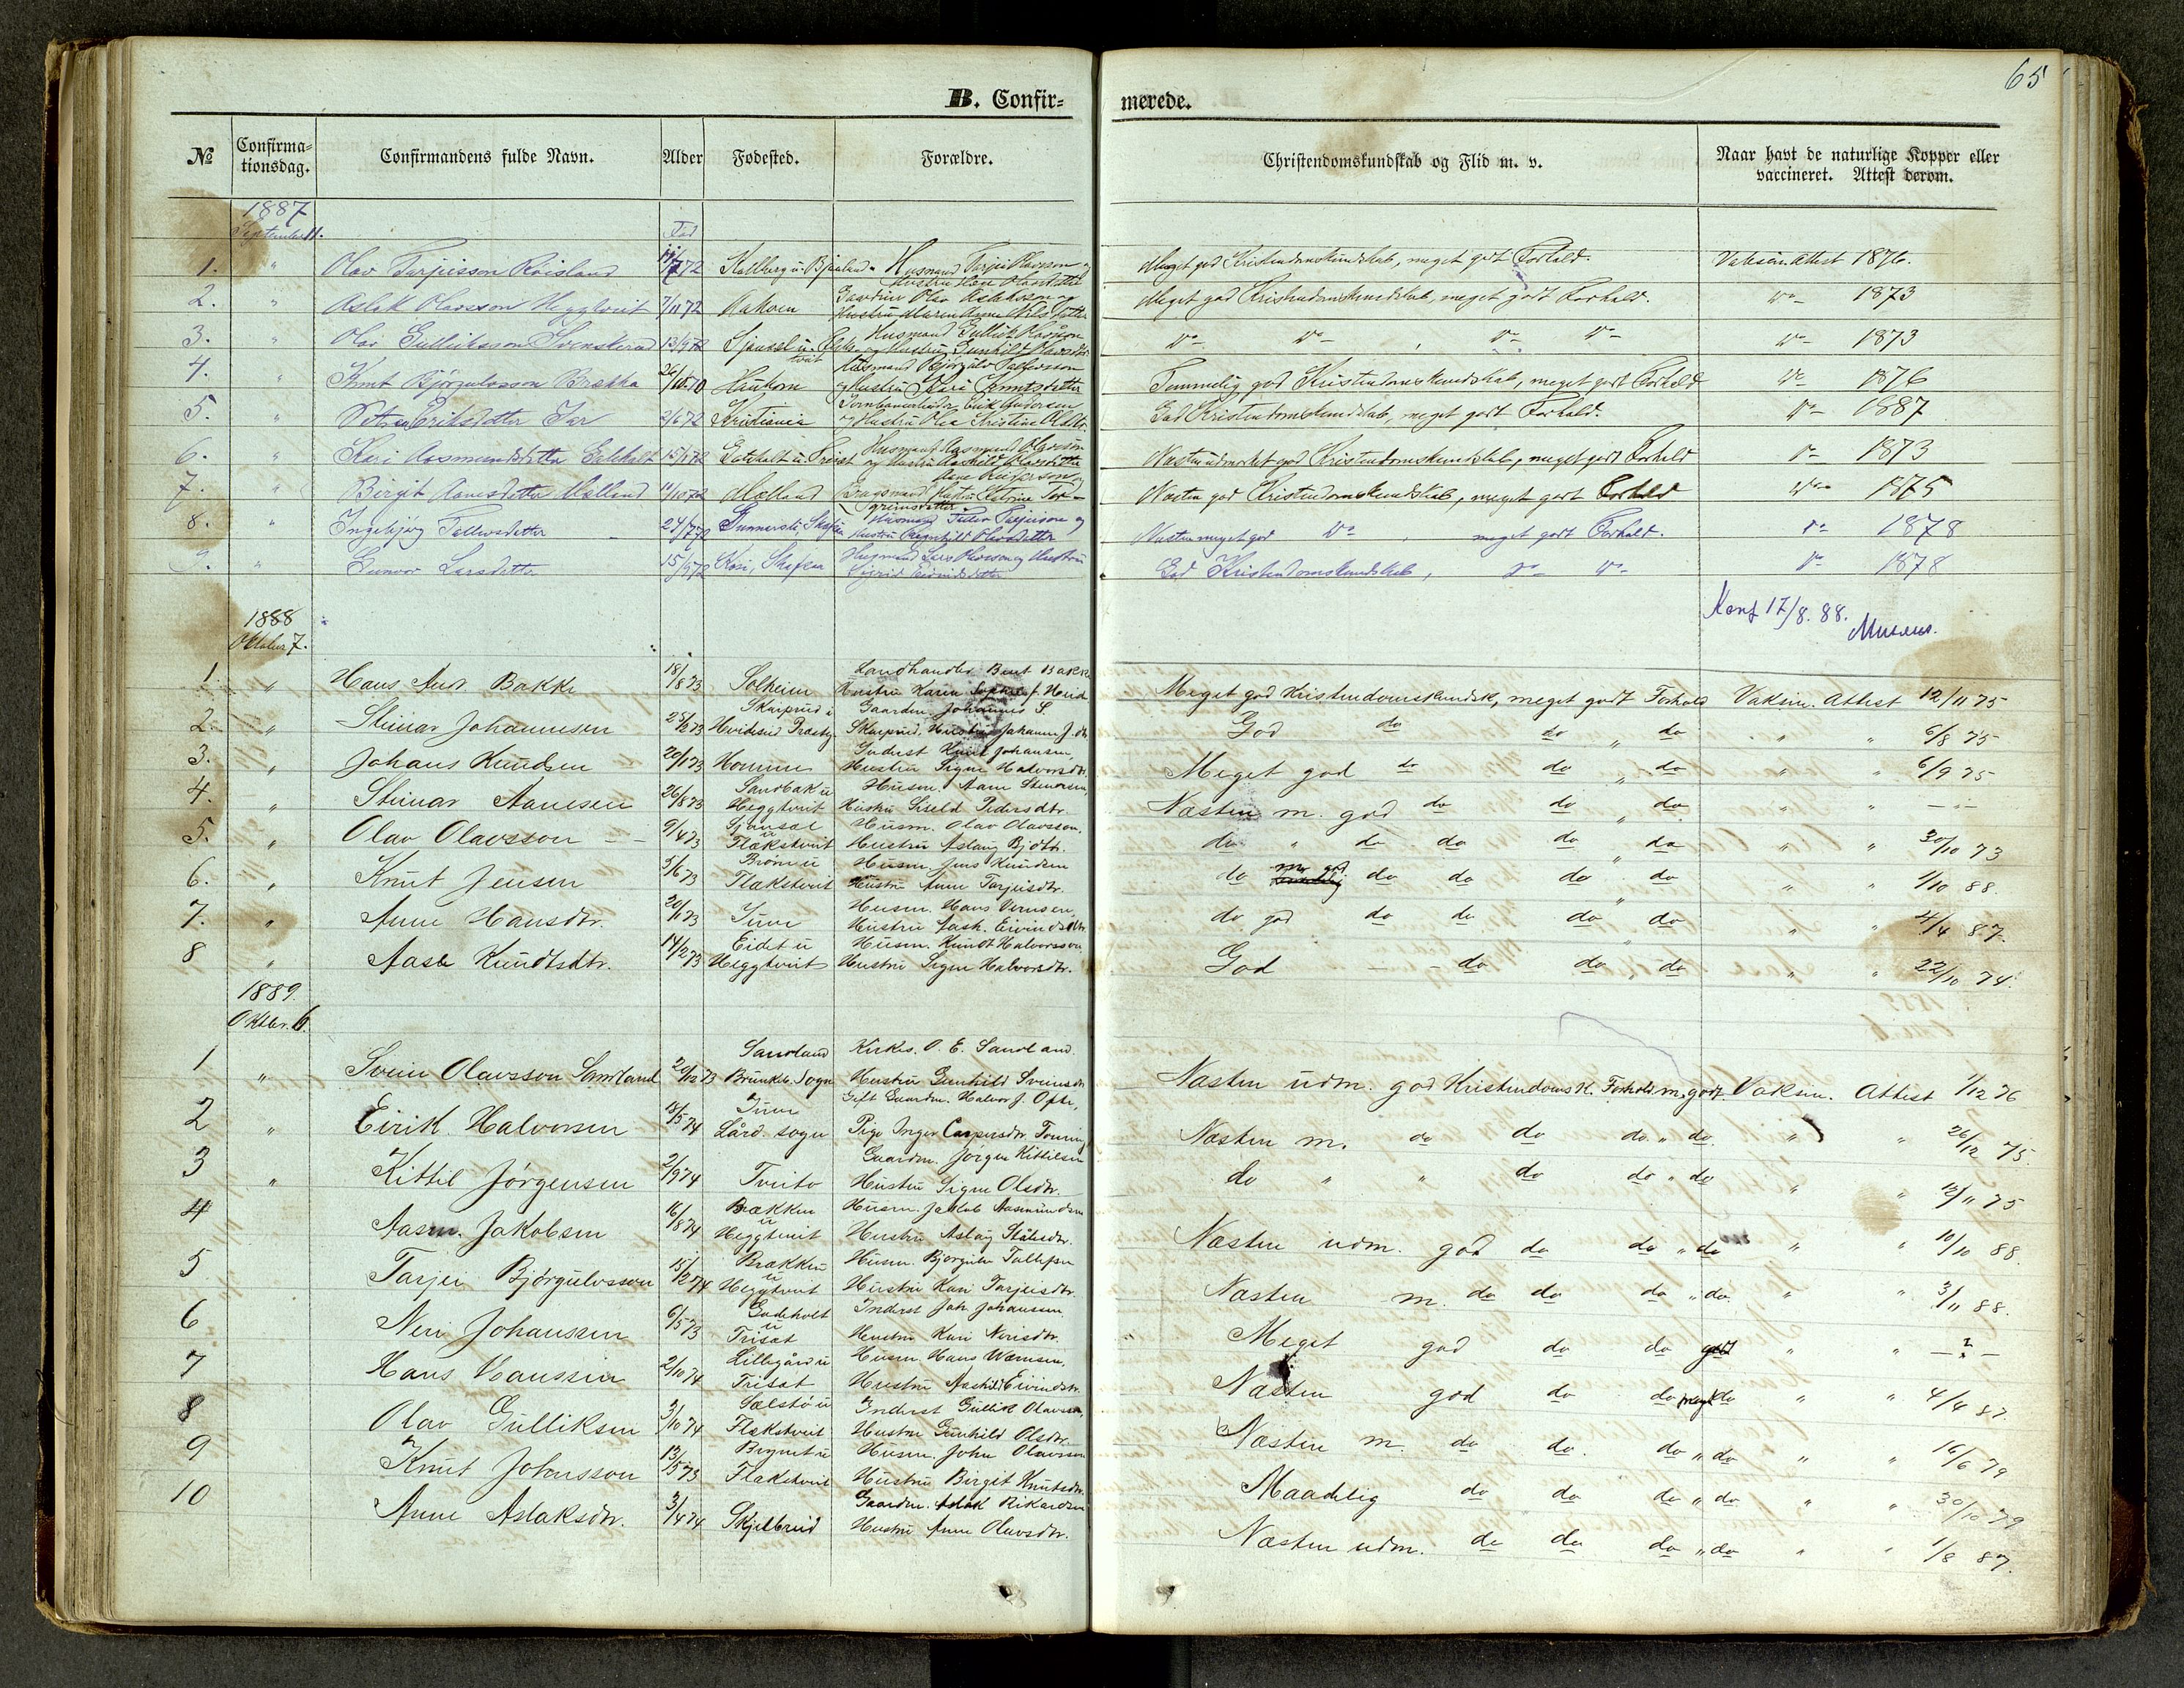 65
B. Confir-
merede.
№ Confirma-tionsdag. Confirmandens fulde Navn. Alder Fødested. Forældre. Christendomskundskab og Flid m. v. Naar havt de naturlige Kopper eller vaccineret. Attest derom.
1887
September 11. Fød
1. " Olav Tarjeisson Røisland 72 Husmand Tarjei Olavson og Hustru Olavsdatter Meget god Kristendomskundskab, meget godt Forhold. Vaksin. Attest 1876.
2. " Aslak Olavsson Heggtveit 7/11 72 Gardbru Olav Aslaksson og Hustru Maren Anne Nilsdatter Meget god Kristendomskundskab, meget godt Forhold. do 1873
3. " Olav Gulliksson Svenskerud 13/9 72 Husmand Gullik Olavson og Hustru Gunhild Olavsdtr do do , do do do 1873
4. " Knut Bjørgulvsson Brækka Haukom Husmand Bjørgulv Tallevsson og Hustru Kari Knutsdatter Temmelig god Kristendomskundskab, meget godt Forhold do 1876
5. " Eriksdatter 2/6 72 Kristiania Jernbanearbeider Erik Andersen og Hustru Kristine God Kristendomskundskab, meget godt Forhold. do 1887
6. " Kari Aasmundsdatter Galeholt 15/1 72 Galeholt u. Trisæt Husmand Aasmund Olavsson og Hustru Olavsdatter Næsten udmærket god Kristendomskundskab, meget godt Forhold do 1873
7. " Birgit Aanesdatter Mælland 11/10 72 Mælland Aane Keisersson og Hustru Katrine Tor-grimsdatter Næsten god Kristendomskundskab, meget godt Forhold do 1875
8. " Ingebjørg Tallevsdatter 24/7 72 Husmand Tallev Tarjeison og Hustru Ragnhild Olavsdatter Næsten meget god do , meget godt Forhold. do 1878
9. " Gunvor Larsdatter 15/9 72 Husmand Lars Olavson og Hustru Sigrid God Kristendomskundskab, do do do 1878
Konf 17/8. 88.
1888
Oktober 7.
1. " Hans Andr. Bakke 18/8 73 Solheim Landhandler Bent Bakke Hustru Karen Sophie f. Meget god Kristendomskundsk, meget godt Forhold Vaksin. Attest 12/11 75
2. " Steinar Johannesen 25/2 73 Skarprud i Hvideseid Præstg Gaardm. Johannes S. Skarprud. Hustru Johanne J. dtr God do do " do " " 6/8 75
3. " Johans Knudsen 20/1 73 Homme Inderst Knut Johansen, Hustru Signe Halvorsdtr. Meget god do do " do " " 6/9 75
4. " Steinar Aanesen 26/8 73 Sandbak u Heggtveit Husm. Aane Steinarsen, Hustru Liseld Pedersdtr. Næsten m. god do do " do " " —"—
5. " Olav Olavsson 9/4 73 Sjausæt u Flakstveit Husm. Olav Olavsson, Hustru Aslaug Bjdtr. do " do do do " do " " 30/10 73
6. " Knut Jensen 3/6 73 Brøm u Flakstveit Husm Jens Knudsen Hustru Anne Tarjeisdtr. do m. god. do do do " do " " 1/10 88.
7. " Anne Hansdtr. 20/1 73 Juve Husm. Hans Vemsen, Hustru Aash. Eivindsdtr. do god do do do " do " " 4/4 87.
8 " Aase Knudtsdtr. 14/2 73 Eidet u Heggtveit Husm. Knudt Halvorsson Hustru Signe Halvorsdtr. God do do " do " " 22/10 74.
1889.
Oktbr. 6.
1 " Svein Olavsson Sandland 20/12 73 Sandland Brunkeb. Sogn Kirkes. O. E. Sandland. Hustru Gunhild Sveinsdtr Næsten udm. god Kristendoms K. Forhold m. godt Vaksin. Attest 1/12 76
2 " Eirik Halvorsen 18/5 74 Juve Lård. sogn Gift Gaardm. Halvor J. Ofte, Pige Inger Caspersdtr. Næsten m. do do do. " do. " " 26/12 75.
3 " Kittil Jørgensen 2/9 74 Tveito Gaardm. Jørgen Kittilsen Hustru Signe Olsdtr. do " " do do " do " " 12/11 75
4 Aasm. Jakobsen 16/8 74 Brækken u Heggtveit Husm. Jakob Aasmundsen Hustru Aslaug Ståledtr. Næsten udm. god do do " do " " 10/10 88.
5 Tarjei Bjørgulvsson 15/2 74 Brækken u Heggtveit Husm. Bjørgulv Tallefsen Hustru Kari Tarjeisdtr. Næsten m. do do do " do. " " 3/11 88.
6 Neri Johanssen 6/5 73 Gadeholt u Trisæt Inderst Joh. Johansen Hustru Kari Nerisdtr. Meget god do do godt " " —?—
7 Hans Hanssen 2/10 74 Lillegård u Trisæt Husm. Hans Wæmsen, Hustru Aashild Eivindsdtr. Næsten god do do meget do " " 4/4 87
8 Olav Gulliksen 3/10 74 Sælstø u Flakstveit Inderst Gullik Olavssen, Hustru Gunhild Olsdtr. Næsten m. do do. do " do " " 16/6 79
9 Knut Johnsson 13/5 73 Flakstveit Husm. John Olavsson Hustru Birget Knutsdtr. Maadelig do do do " do " " 30/10 79
10 Anne Aslaksdtr. 3/4 74 Skjelbreid Gaardm. Aslak Rikardsen Hustru Anne Olavsdtr. Næsten udm. do do do " do " " 1/8 87.